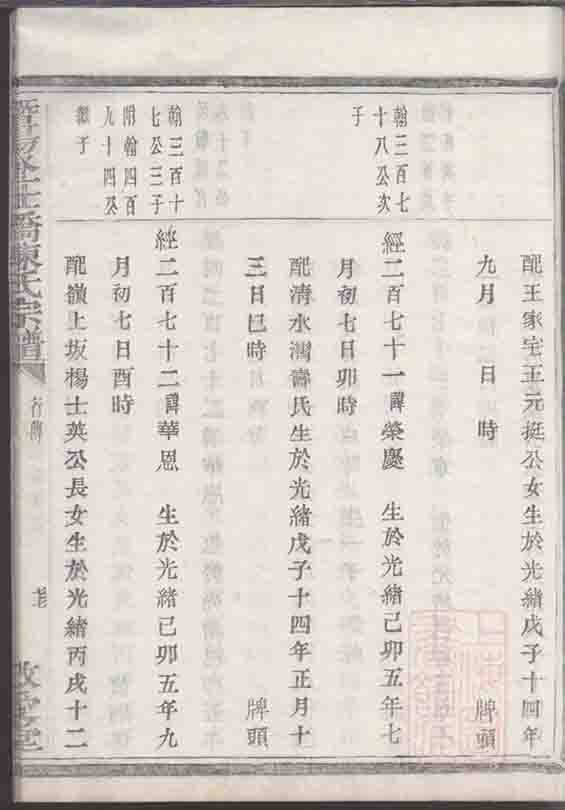 配王家宅王元挺公女生於光緒戊子十四年
九月 日 時 牌頭
翰三百七
十八公次
子
經二百七十一諱榮慶 生於光緒己卯五年七
月初七日卯時
配清水灣壽氏生於光緒戊子十四年正月十
三日巳時 牌頭
翰三百十
七公三子
附翰四百
九十四癸
繼子
經二百七十二諱華恩 生於光緒己卯五年九
月初七日酉時
配嶺上坂楊士英公長女生於光緒丙戌十二
橋陳氏宗譜
行傳